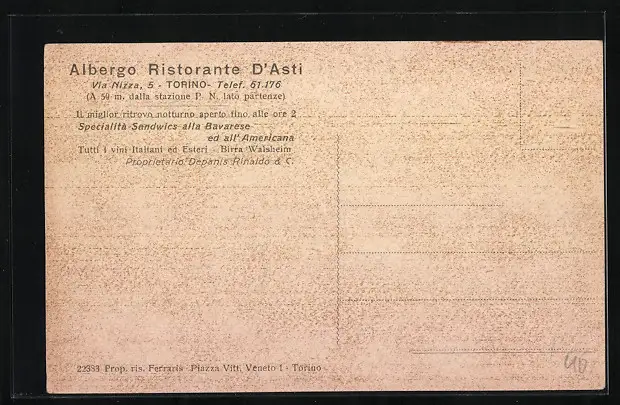 Albergo Ristorante D'Asti
Via Nizza, 5 - TORINO - Telef. 61.176
(A 50 m. dalla stazione P. N. lato partenze)
Il miglior ritrovo notturno aperto fino alle ore 2
Specialità Sandwics alla Bavarese
ed all'Americana
Tutti i vini Italiani ed Esteri - Birra Walsheim
Proprietario Depanis Rinaldo & C.
22333 Prop. ris. Ferraris Piazza Vitt. Veneto 1 - Torino
40